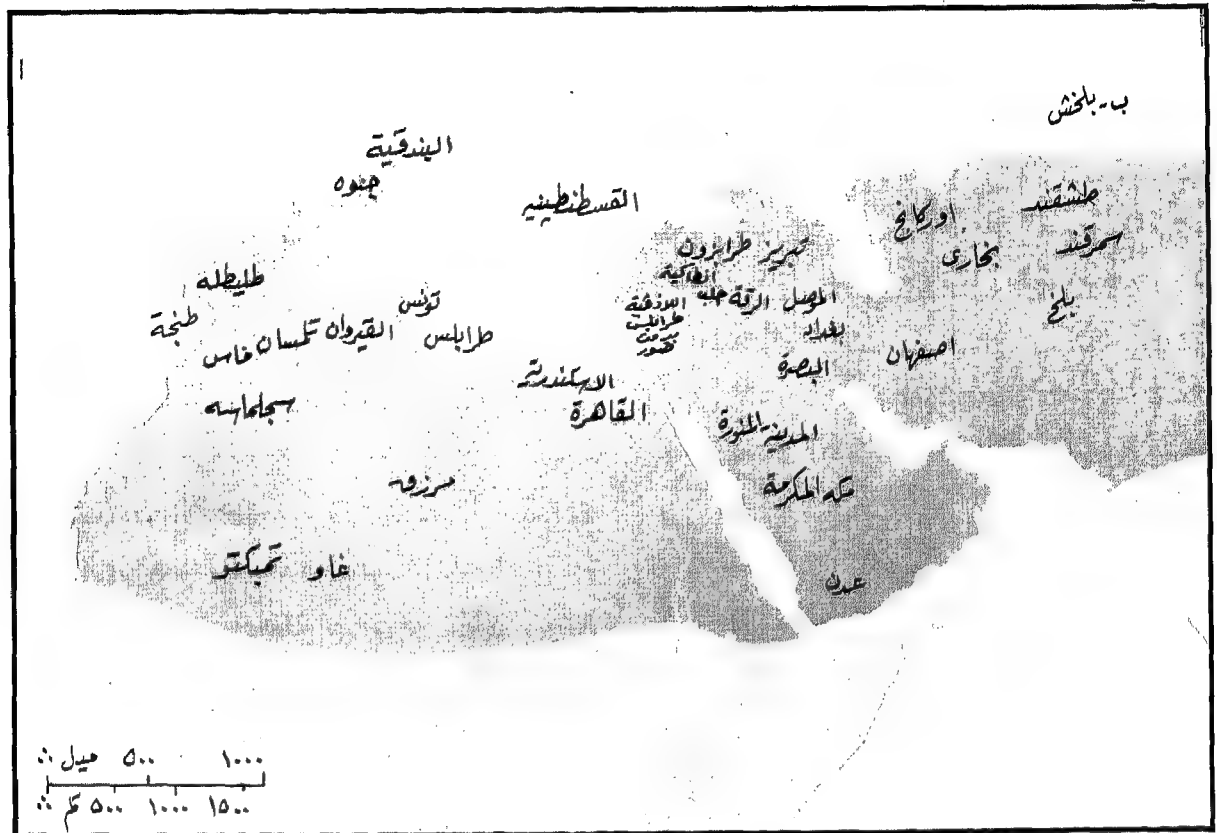 ب - بلخش
البندقية
جنوه
القسطنطينيه
طشقند
اوركانج
سمرقند
بخارى
تبريز طرابزون
انطاكية
طليطله
تونس
اللاذقية
حلب الرقة الموصل
بلخ
طنجة
فاس تلمسان القيروان طرابلس
طرابلس
بغداد
صور
اصفهان
البصرة
الاسكندريه
سجلماسه
القاهرة
المدينه المنورة
مرزوقه
مكه المكرمة
تمبكتو غاو
عدن
ميل ٥٠٠ ١٠٠٠
كم ٥٠٠ ١٠٠٠ ١٥٠٠